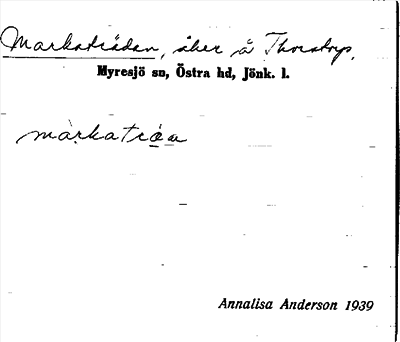 Markaträdan, åker å Thorstorp.
Myresjö sn, Östra hd, Jönk. l.
màrkatrǫa
Annalisa Anderson 1939